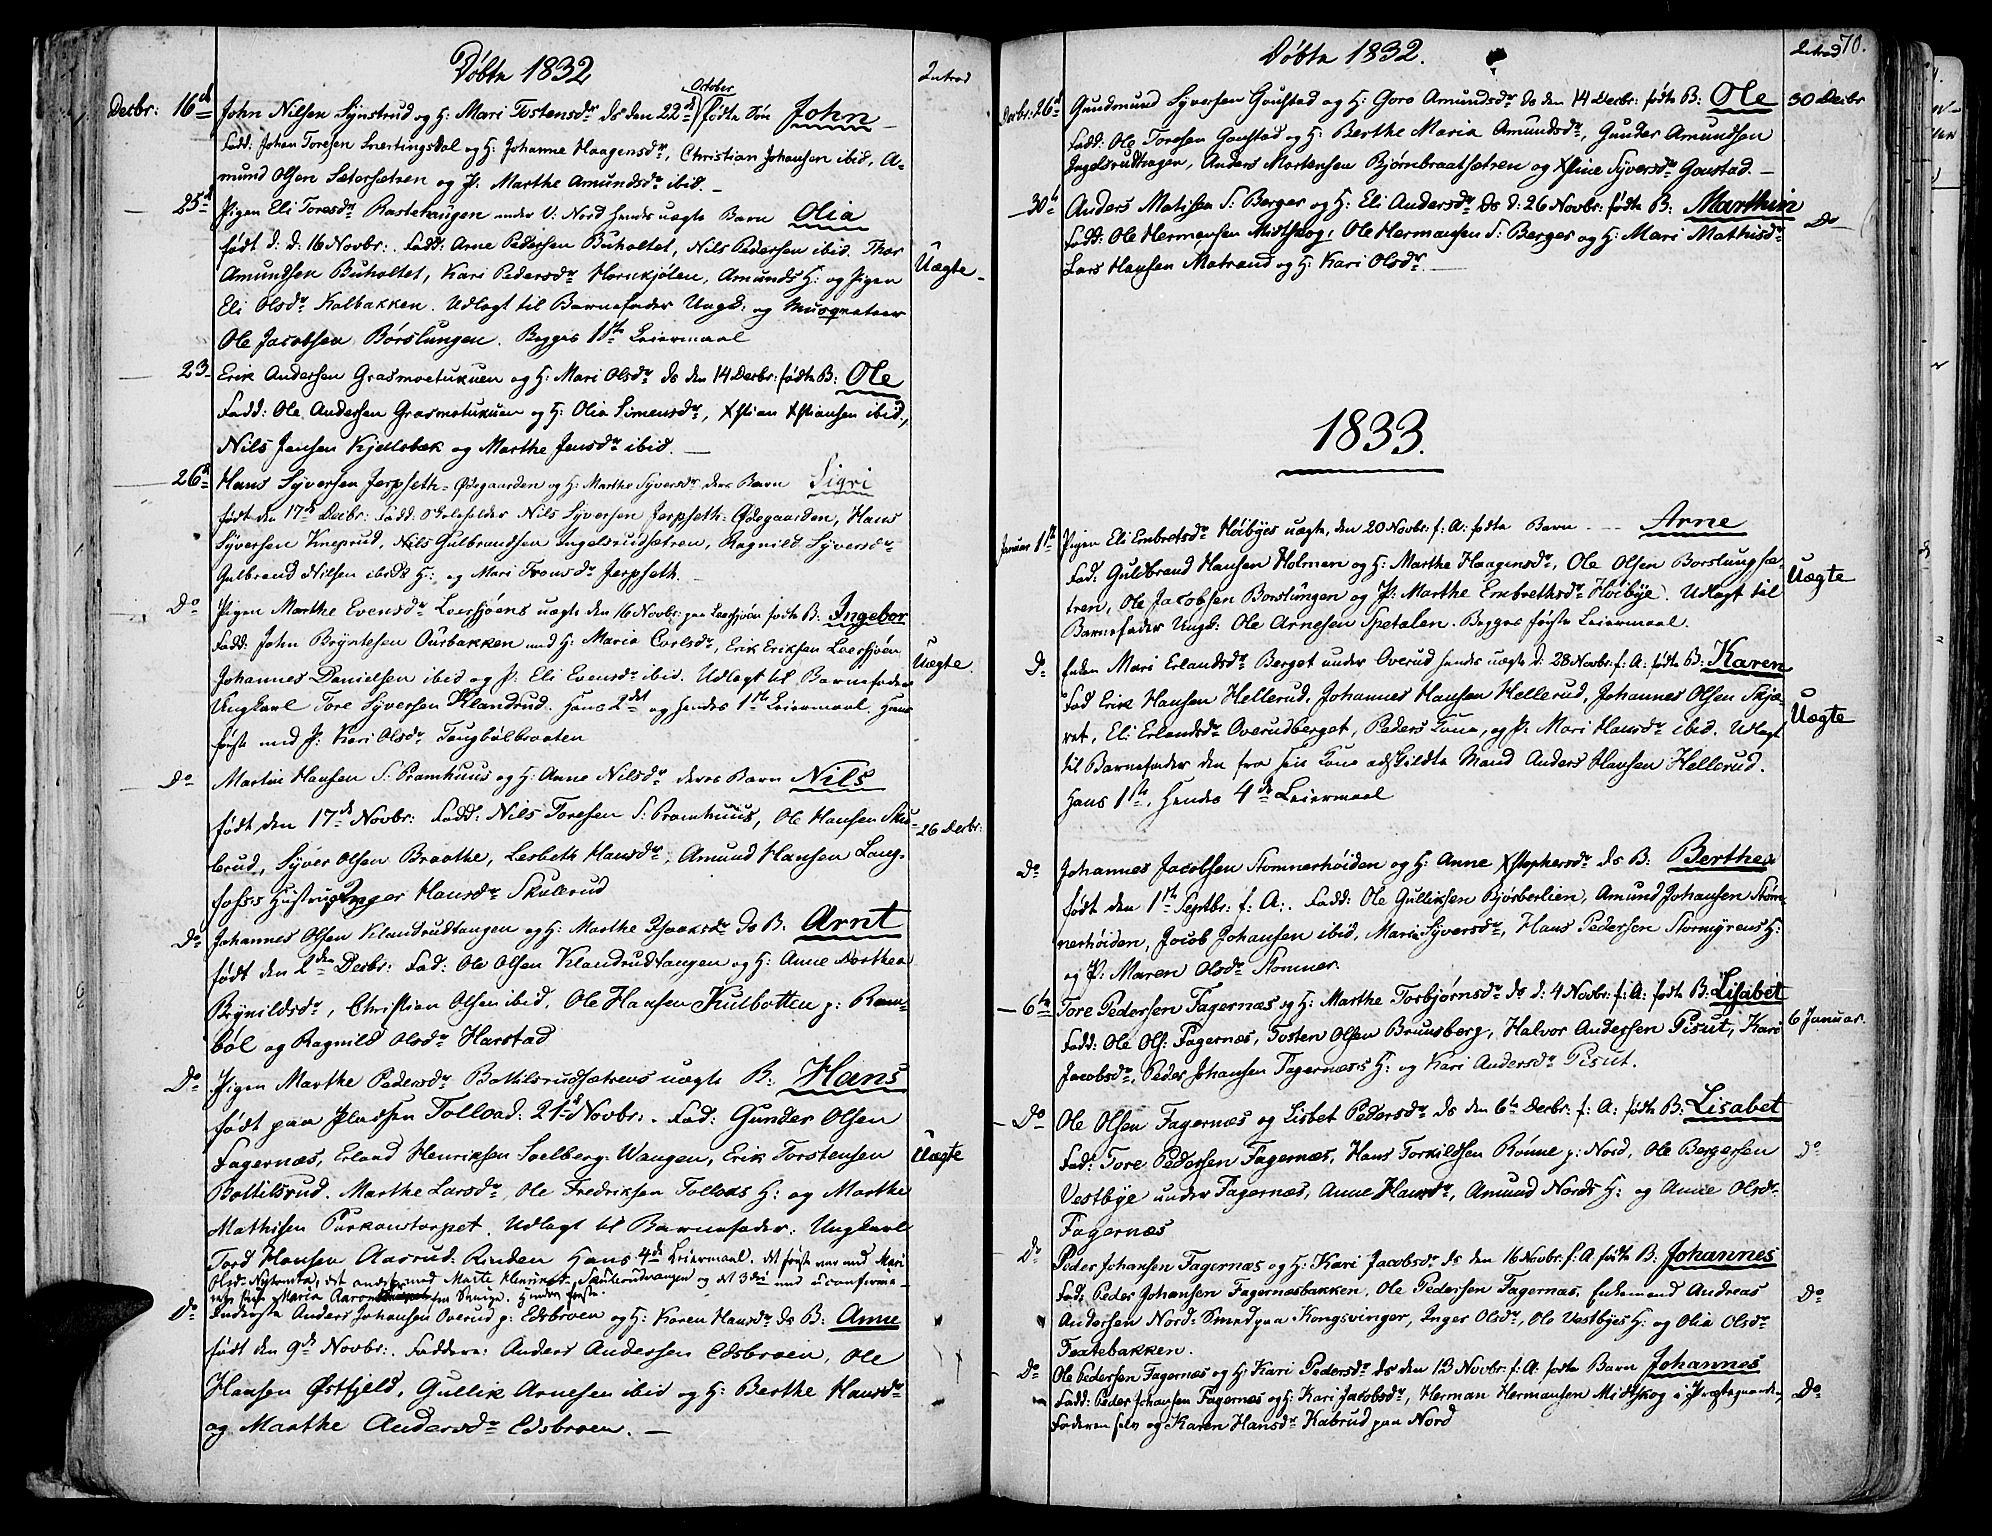 Døbte 1832
Introd
Decbr: 16d John Nilsen Synstrud og H: Mari Tostensdr ds den 22d October fødte Søn John
Fadd: Johan Toresen Snertingsdal og H: Johanne Haagensdr, Christian Johansen ibid, A-
mund Olsen Sætersætren og P: Marthe Amundsdr ibid.
25d Pigen Eli Toresdr Rastehaugen under V: Nord hendes uægte Barn Olia
født d: d: 16 Novbr:. Fadd: Arne Pedersen Buholtet, Nils Pedersen ibid. Thor
Amundsen Buholtet, Kari Pedersdr Hornkjølen, Amunds H: og Pigen
Uægte
Eli Olsdr Kalbakken. Udlagt til Barnefader Ungk: og Musqueteer
Ole Jacobsen Børslungen. Begges 1ste Leiermaal
23 Erik Andersen Grasmoetukuen og H: Mari Olsdr ds den 14 Decbr: fødte B: Ole
Fadd: Ole Andersen Grasmotukuen og H: Olia Simensdr, Xstian Xstiansen ibid,
Nils Jensen Kjellsbæk og Marthe Jensdr ibid.
26d Hans Syversen Jerpseth-Ødegaarden og H: Marthe Syversdr deres Barn Sigri
født den 17d Decbr: Fadd: Skoleholder Nils Syversen Jerpseth-Ødegaarden, Hans
Syversen Kneprud, Nils Gulbrandsen Ingelsrudsætren, Ragnild Syversdr
Gulbrand Nilsen ibids H: og Mari Tronsdr Jerpseth
Do Pigen Marthe Evensdr Loersjøens uægte den 16 Novbr: paa Loersjøen fødte B: Ingebor
Fadd: John Bryntesen Ourbakken med H: Maria Carlsdr, Erik Eriksen Loersjøen
Uægte
Johannes Danielsen ibid og P: Eli Evensdr ibid. Udlagt til Barnefader
Ungkarl Tore Syversen Klandrud. Hans 2det og hendes 1ste Leiermaal. Hans
første med P: Kari Olsdr Taugbølbraaten
Do Martin Hansen S: Pramhuus og H: Anne Nilsdr deres Barn Nils
født den 17de Novbr: Fadd: Nils Toresen S: Pramhuus, Ole Hansen Sku-
26 Decbr:
lerud, Syver Olsen Braathe, Lesbeth Hansdr, Amund Hansen Lang-
fos's Hustrue Inger Hansdr Skulerud
Do Johannes Olsen Klandrudtangen og H: Marthe Isaaksdr ds B: Arnt
født den 2den Decbr: Fad: Ole Olsen Klandrudtangen og H: Anne Dorthea
Brynildsdr, Christian Olsen ibid, Ole Hansen Kulbotten p: Ram-
bøl og Ragnild Olsdr Harstad
Do Pigen Marthe Pedersdr Bottilsrudsætrens uægte B: Hans
født paa Pladsen Tolload: 21d Novbr:. Fad: Gunder Olsen
Fagernæs, Erland Henriksen Soelberg-Wangen, Erik Torstensen
Uægte
Bottilsrud. Marthe Larsdr, Ole Fredriksen Tolloks H: og Marthe
Mathisen Purkanstorpet. Udlagt til Barnefader: Ungkarl
Tord Hansen Aasrud-Rinden Hans 4de Leiermaal. det første var med Mari
Do Inderste Anders Johansen Overud p: Edsbroen og H: Karen Hansdr ds B: Anne
født den 9de Novbr:. Faddere: Anders Andersen Edsbroen, Ole
Hansen Østfjeld, Gullik Arnesen ibid og H: Berthe Hansdr
og Marthe Andersdr Edsbroen.
Døbte 1832.
Introd 70.
Decbr: 26d Gundmund Syversen Goustad og H: Goro Amundsdr ds den 14 Decbr: fødte B: Ole 30 Decbr
Fadd: Ole Toresen Goustad og H: Berthe Maria Amundsdr, Gunder Amundsen
Ingelsrudhagen, Anders Mortensen Bjørnbraatsætren og Xstine Syversdr Goustad.
30te Anders Matisen S: Berger og H: Eli Andersdr ds d: 26 Novbr: fødte B: Marthin
Do
Fadd: Ole Hermansen Midtskog, Ole Hermansen S: Berges og H: Mari Mathisdr
Lars Hansen Matrand og H: Kari Olsdr
1833.
Januar 1ste Pigen Eli Embretsdr Høibyes uægte, den 20 Novbr: f: A: fødte Barn Arne
Fad: Guldbrand Hansen Holmen og H: Marthe Haagensdr, Ole Olsen Borslungsæ-
Uægte
tren, Ole Jacobsen Borslungen og P: Marthe Embrethsdr Høibye. Udlagt til
Barnefader Ungk: Ole Arnesen Spetalen. Begges første Leiermaal.
Do Enken Mari Erlandsdr Berget under Overud hendes uægte d: 28 Novbr: f: A: fødte B: Karen
Fad Erik Hansen Hellerud, Johannes Hansen Hellerud, Johannes Olsen Skjæ-
Uægte
ret, Eli Erlandsdr Overudberget, Peders Kone, og P: Mari Hansdr ibid. Udlagt
til Barnefader den fra sin Kone adskildte Mand Anders Hansen Hellerud.
Hans 1ste, Hendes 4de Leiermaal
Do Johannes Jacobsen Stomnerhøiden og H: Anne Xstophersdr ds B: Berthe
født den 1ste Septbr: f: A:. Fadd: Ole Gulliksen Bjørberlien, Amund Johansen Stom-
nerhøiden, Jacob Johansen ibid, Maria Syversdr, Hans Pedersen Stormyrens H:
og P: Maren Olsdr Stomner.
6te Tore Pedersen Fagernæs og H: Marthe Torbjørnsdr ds d: 4 Novbr: f: A: fødte B: Lisabet
6 Januar.
Fadd: Ole Ols: Fagernæs, Tosten Olsen Brunsberg, Halvor Andersen Pisut, Kari
Jacobsdr, Peder Johansen Fagernæss H: og Kari Andersdr Pisut.
Do Ole Olsen Fagernæs og Lisbet Pedersdr ds den 6te Decbr: f: A: fødte B: Lisabet
Fad: Tore Pedersen Fagernæs, Hans Torkildsen Rønne p: Nord, Ole Bergersen
Do
Vestbye under Fagernæs, Anne Hansdr, Amund Nords H: og Anne Olsdr
Fagernæs
Do Peder Johansen Fagernæs og H: Kari Jacobsdr ds den 16 Novbr: f: A fødte B: Johannes
Fad: Peder Johansen Fagernæsbakken, Ole Pedersen Fagernæs, Enkemand Andreas
Do
Andersen Nord-Smed paa Kongsvinger, Inger Olsdr, Ole Vestbyes H: og Olia Olsdr
Textebakken.
Do Ole Pedersen Fagernæs og H: Kari Pedersdr ds den 13 Novbr: f: A: fødte Barn Johannes
Fadd: Peder Johansen Fagernæs og H: Kari Jacobsdr, Herman Hermansen Midtskog i Præstegaarden,
Do
Faderen selv og Karen Hansdr Kabrud paa Nord